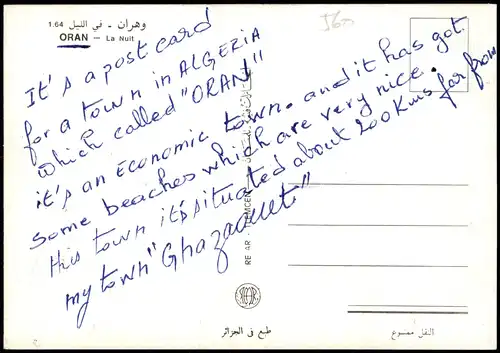 1.64 وهران - في الليل
ORAN – La Nuit
J60
It's a post card
for a town in ALGERIA
which called "ORAN"
it's an economic town. and it has got
some beaches which are very nice.
this town it's situated about 200 Kms far from
my town "Ghazaouet"
طبع في الجزائر
النقل ممنوع